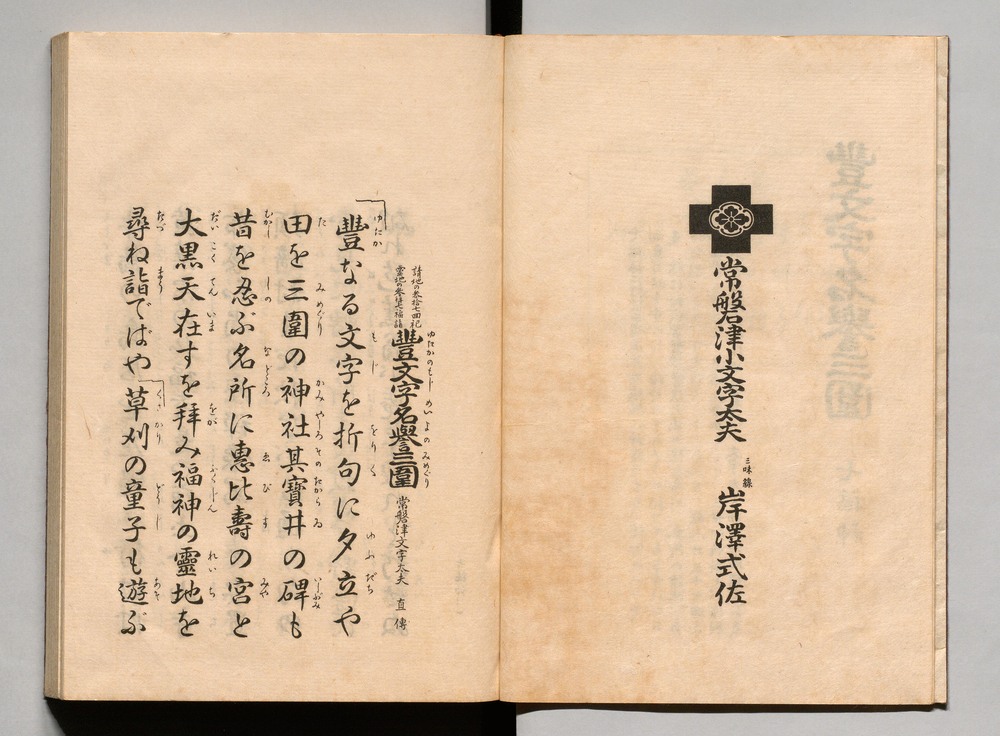 常磐津小文字太夫
三味線 岸澤式佐
請地の叁拾七四祀
靈地の叁 福詣
豐文字名譽三圍
ゆたかのもじ めいよの みめぐり
常磐津文字太夫 直傳
豐なる文字を折句に夕立や
田を三圍の神社其寶井の碑も
昔を忍ぶ名所に惠比壽の宮と
大黒天在すを拜み福神の靈地を
尋ね詣でばや草刈の童子も遊ぶ